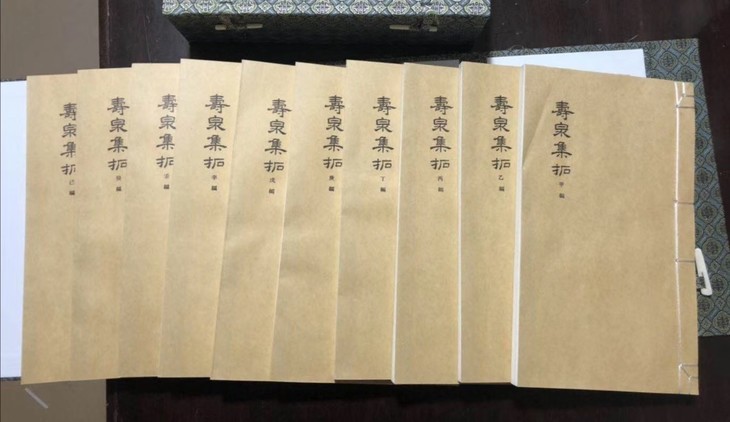 壽泉集拓
甲編
壽泉集拓
乙編
壽泉集拓
丙編
壽泉集拓
丁編
壽泉集拓
庚編
壽泉集拓
戊編
壽泉集拓
辛編
壽泉集拓
壬編
壽泉集拓
癸編
壽泉集拓
己編